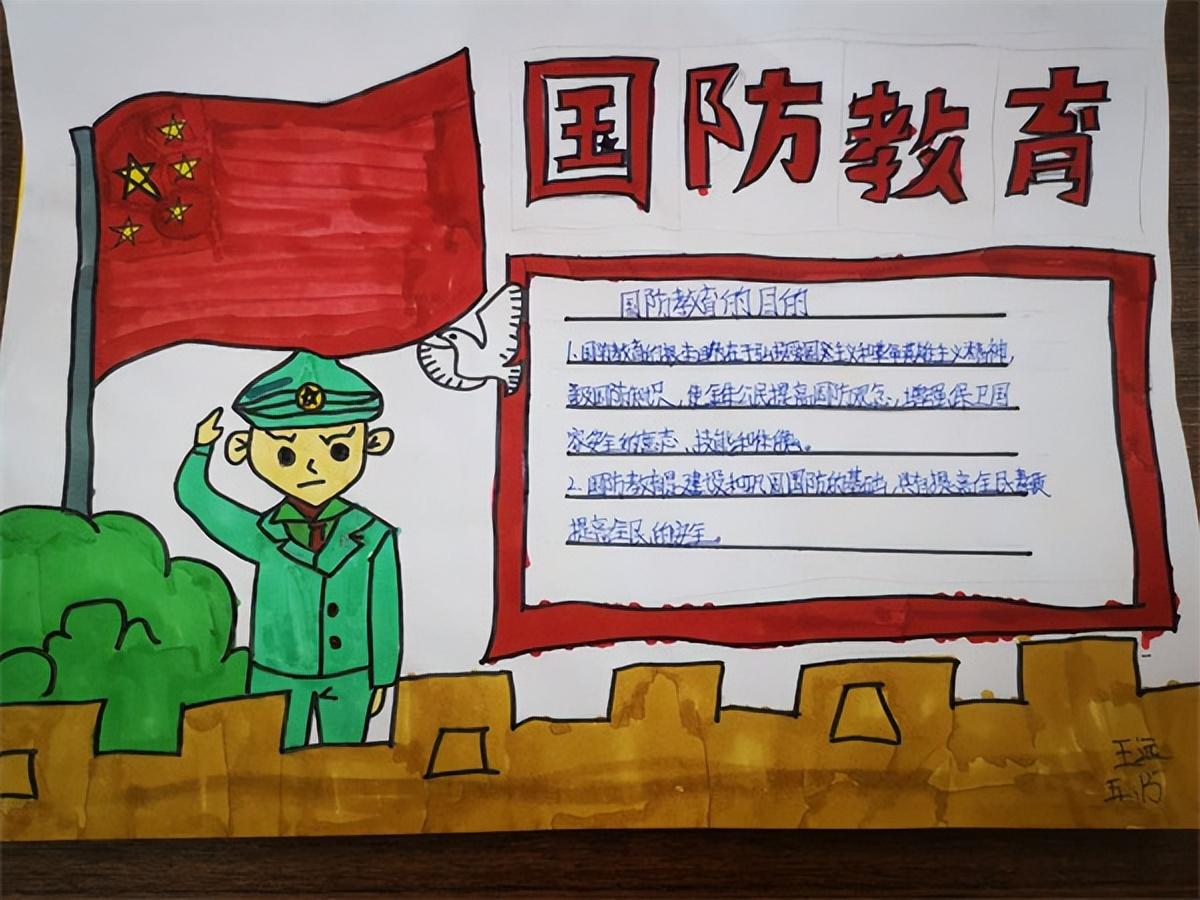 国防教育
国防教育的目的
1.国防教育的根本目的在于弘扬爱国主义和革命英雄主义精神,
国防知识,使全体公民提高国防观念、增强保卫国
家安全的意志、技能和体能。
2.国防教育是建设和巩固国防的基础,也有提高全民素质
提高全民的安全。
王远